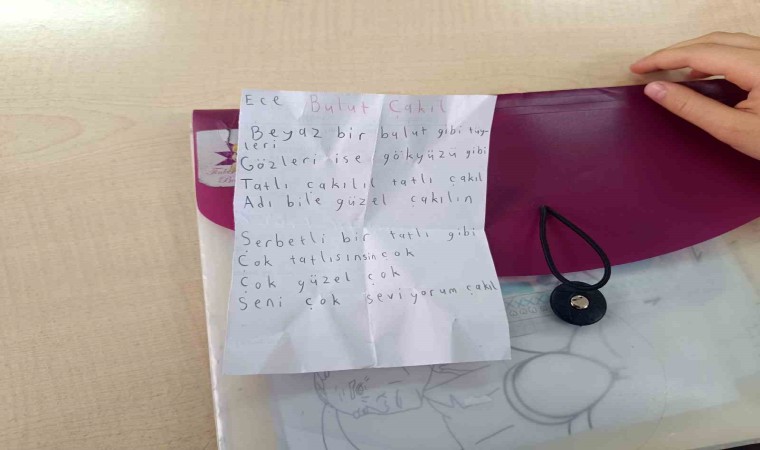 Ece Bulut Çakıl
Beyaz bir bulut gibi tüy-
leri
Gözleri ise gökyüzü gibi
Tatlı çakılıl tatlı çakıl
Adı bile güzel çakılın
Serbetli bir tatlı gibi
Çok tatlısınsin çok
Çok yüzel çok
Seni çok seviyorum çakıl